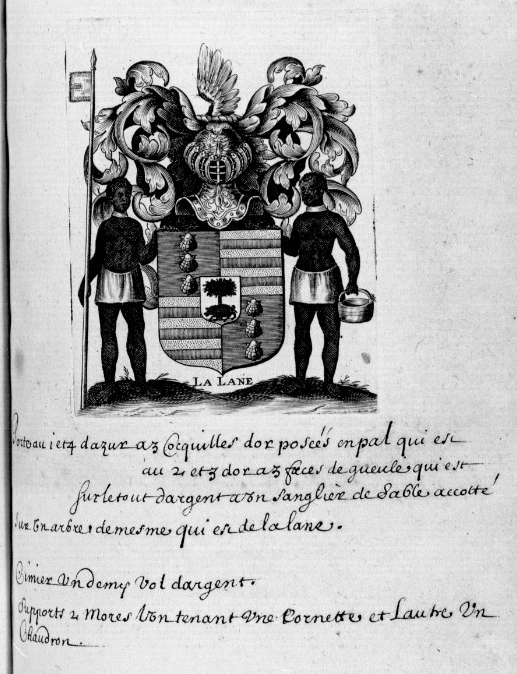 LA LANE
Porte au 1 et 4 dazur a 3 Cocquilles dor posceés en pal qui est
au 2 et 3 dor a 3 fæces de gueule, qui est
sur le tout dargent a Vn sanglier de sable accotté
sur Vn arbre, de mesme qui est de la lane.
Cimier Vn demy vol dargent.
Supports 2 Mores lVn tenant Vne Cornette et Lautre Vn
Chaudron.